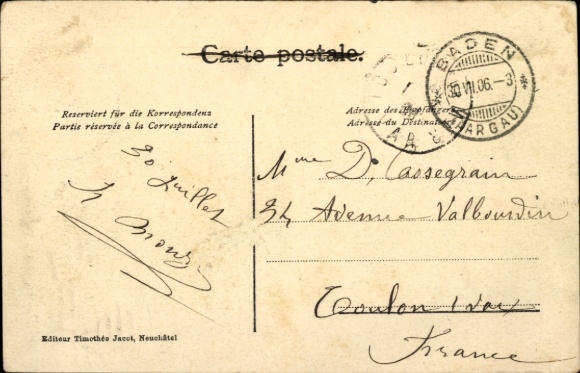 Carte postale.
BADEN
30.VII.06.-3
(AARGAU)
Reserviert für die Korrespondenz
Partie réservée à la Correspondance
Adresse des Empfängers
Adresse du Destinataire
30 Juillet
Mme D. Cassegrain
34 Avenue Valbourdin
Toulon (Var)
France
Editeur Timothée Jacot, Neuchâtel